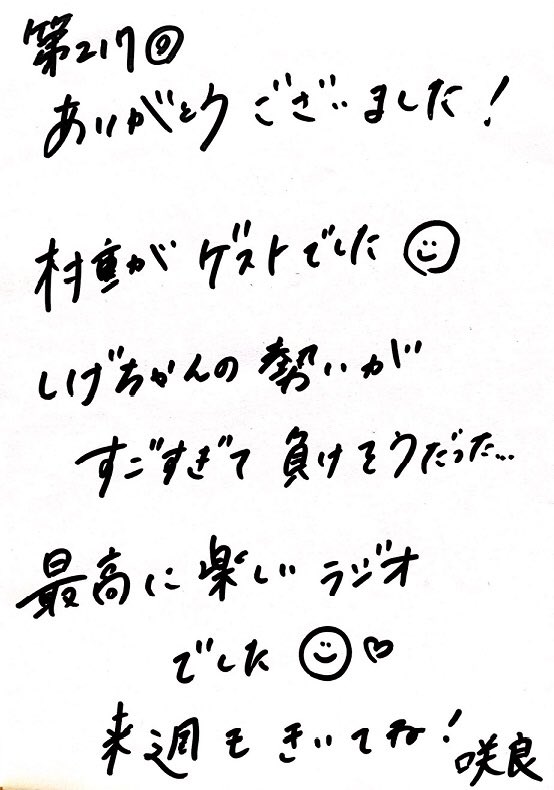 第217回
ありがとうございました！
村重がゲストでした
しげちゃんの勢いが
すごすぎて負けそうだった…
最高に楽しいラジオ
でした ♡
来週もきいてね！
咲良